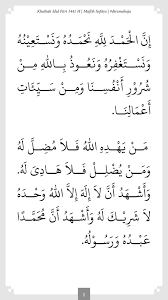 Khutbah Idul Fitri 1441 H | Muflih Safitra | @thesunnahqu
إِنَّ الْحَمْدَ لِلَّهِ نَحْمَدُهُ وَنَسْتَعِيْنُهُ
وَنَسْتَغْفِرُهُ وَنَعُوْذُ بِاللهِ مِنْ
شُرُوْرِ أَنْفُسِنَا وَمِنْ سَيِّئَاتِ
أَعْمَالِنَا.
مَنْ يَهْدِهِ اللهُ فَلاَ مُضِلَّ لَهُ
وَمَنْ يُضْلِلْ فَلاَ هَادِيَ لَهُ.
وَأَشْهَدُ أَنْ لاَ إِلَهَ إِلاَّ اللهُ وَحْدَهُ
لاَ شَرِيْكَ لَهُ وَأَشْهَدُ أَنَّ مُحَمَّدًا
عَبْدُهُ وَرَسُوْلُهُ.